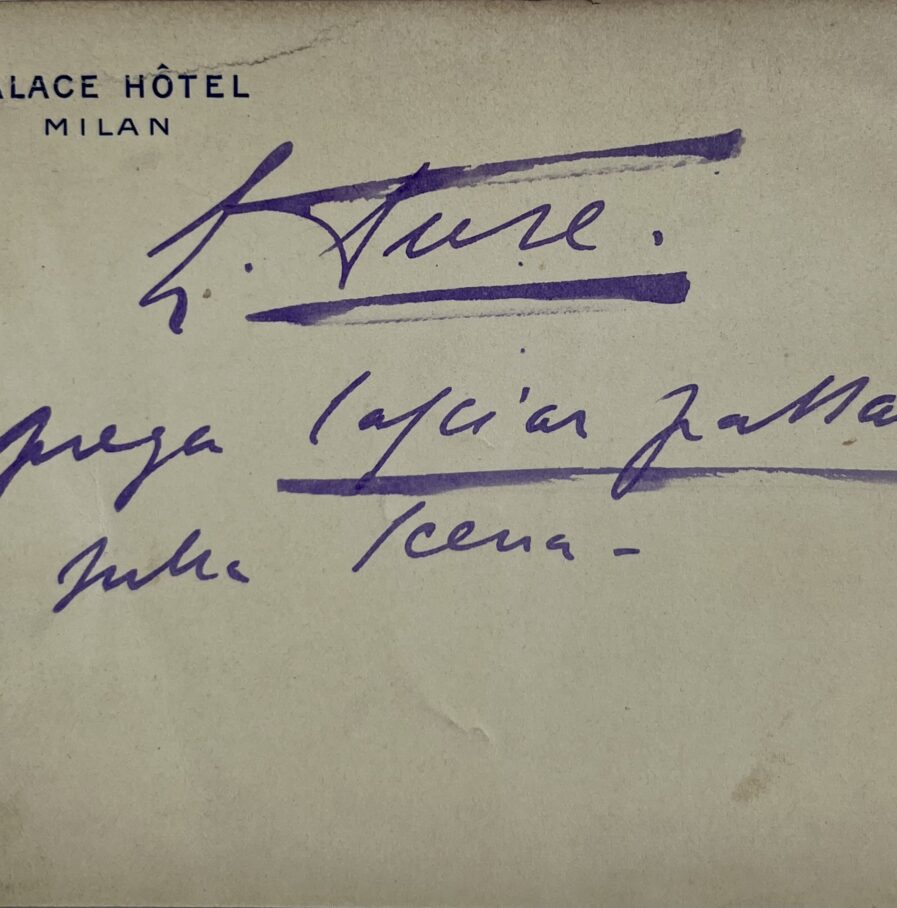 ALACE HÔTEL
MILAN
E. Duse.
prega lasciar passa
sulla scena -